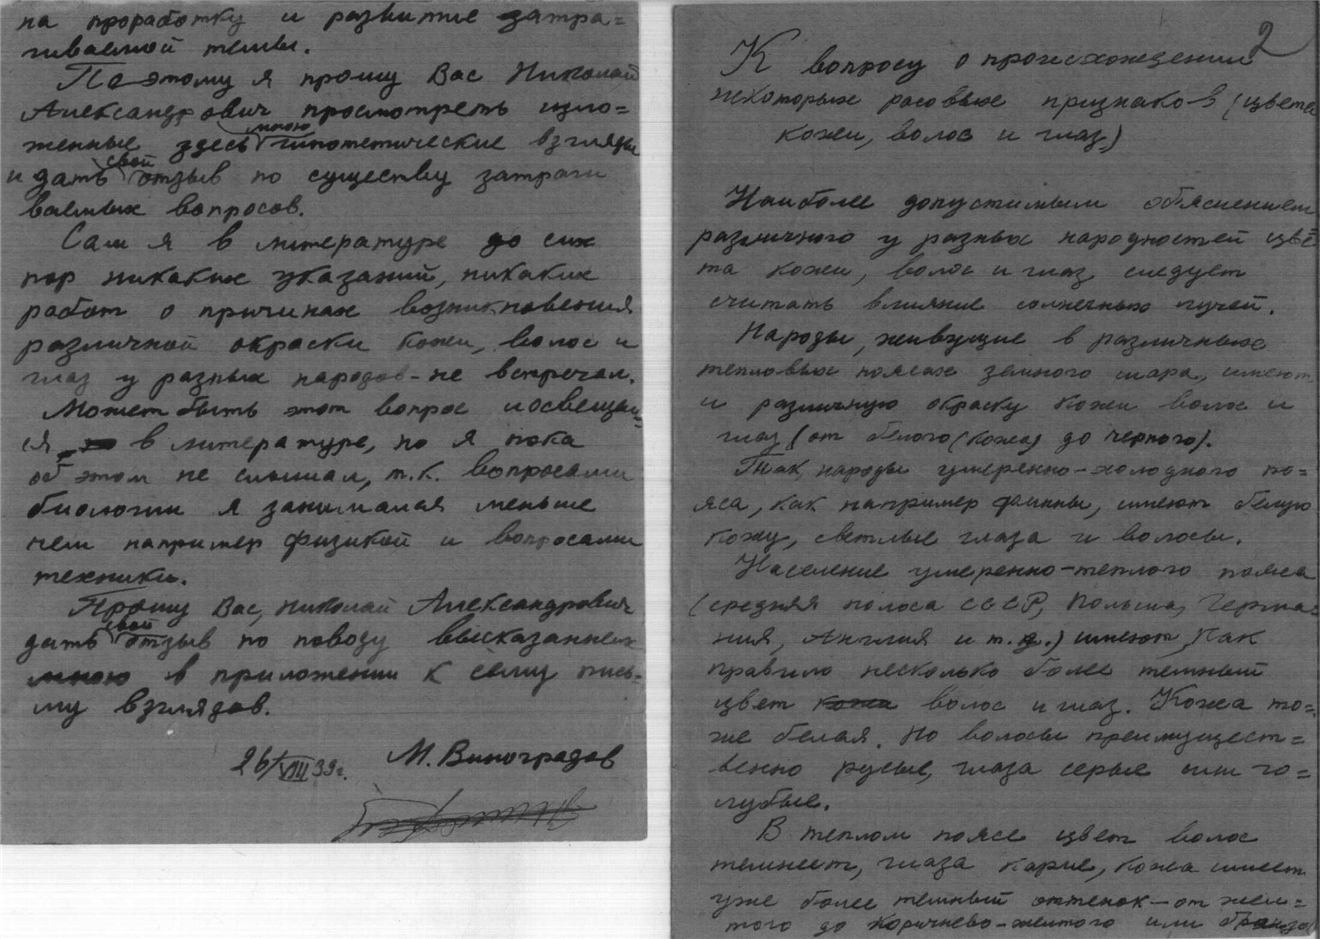 на проработку и развитие затра=
гиваемой темы.
Поэтому я прошу Вас Николай
Александрович просмотреть изло=
женные здесь мною гипотетические взгляды
и дать свой отзыв по существу затраги
ваемых вопросов.
Сам я в литературе до сих
пор никаких указаний, никаких
работ о причинах возникновения
различной окраски кожи, волос и
глаз у разных народов - не встречал.
Может быть этот вопрос и освещал-
ся в литературе, но я пока
об этом не слышал, т.к. вопросами
биологии я занимался меньше
чем например физикой и вопросами
техники.
Прошу Вас, Николай Александрович
дать свой отзыв по поводу высказанных
мною в приложении к сему пись-
му взглядов.
26/VIII 39г. М. Виноградов
2
К вопросу о происхождении
некоторых расовых признаков (цвета
кожи, волос и глаз)
Наиболее допустимым объяснением
различного у разных народностей цве=
та кожи, волос и глаз следует
считать влияние солнечных лучей.
Народы, живущие в различных
тепловых поясах земного шара, имеют
и различную окраску кожи волос и
глаз (от белого (кожа) до черного).
Так, народы умеренно-холодного по=
яса, как например финны, имеют белую
кожу, светлые глаза и волосы.
Население умеренно-теплого пояса
(средняя полоса СССР, Польша, Герма=
ния, Англия и т.д.) имеют, как
правило несколько более темный
цвет кожа волос и глаз. Кожа то=
же белая. Но волосы преимущест=
венно русые, глаза серые или го=
лубые.
В теплом поясе цвет волос
темнеет, глаза карие, кожа имеет
уже более темный оттенок - от жел=
того до коричнево-желтого или